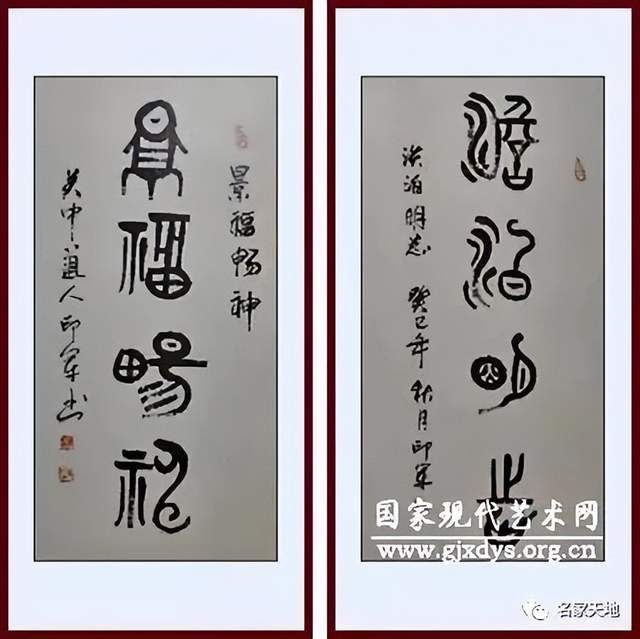 景福畅神
景福暢神
中道人印军书
澹泊明志
淡泊明志 癸巳年秋月印军
国家现代艺术网
www.gjxdys.org.cn
名家天地